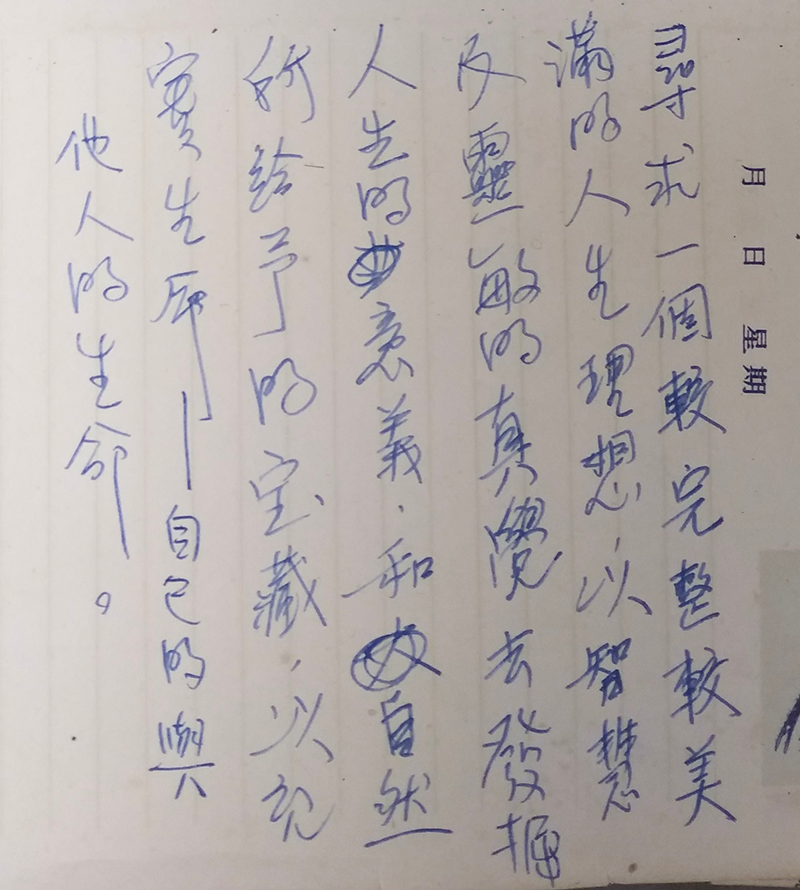 月 日 星期
尋求一個較完整較美
滿的人生理想，以智慧
反靈敏的真覺去發掘
人生的意義，和自然
所給予的宝藏，以充
實生命—自己的與
他人的生命。